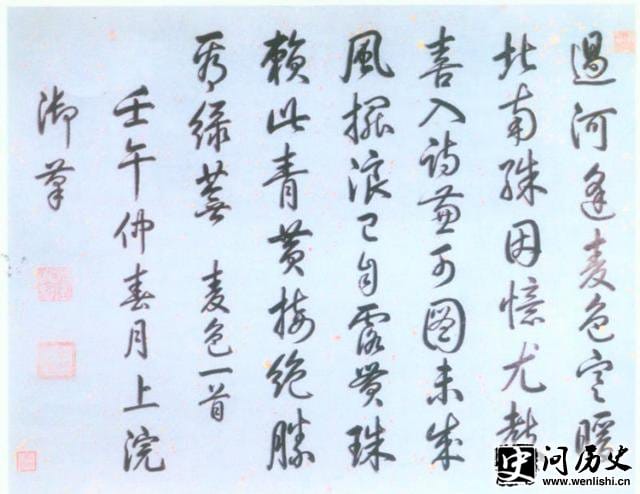 過河逢麥色寒暖
北南殊因憶尤
喜入詩兼可圖未成
風擺浪已自露貫珠
賴此青黃接絶勝
秀綠蕪 麥色一首
壬午仲春月上浣
御筆
史 问历史
www.wenlishi.cn